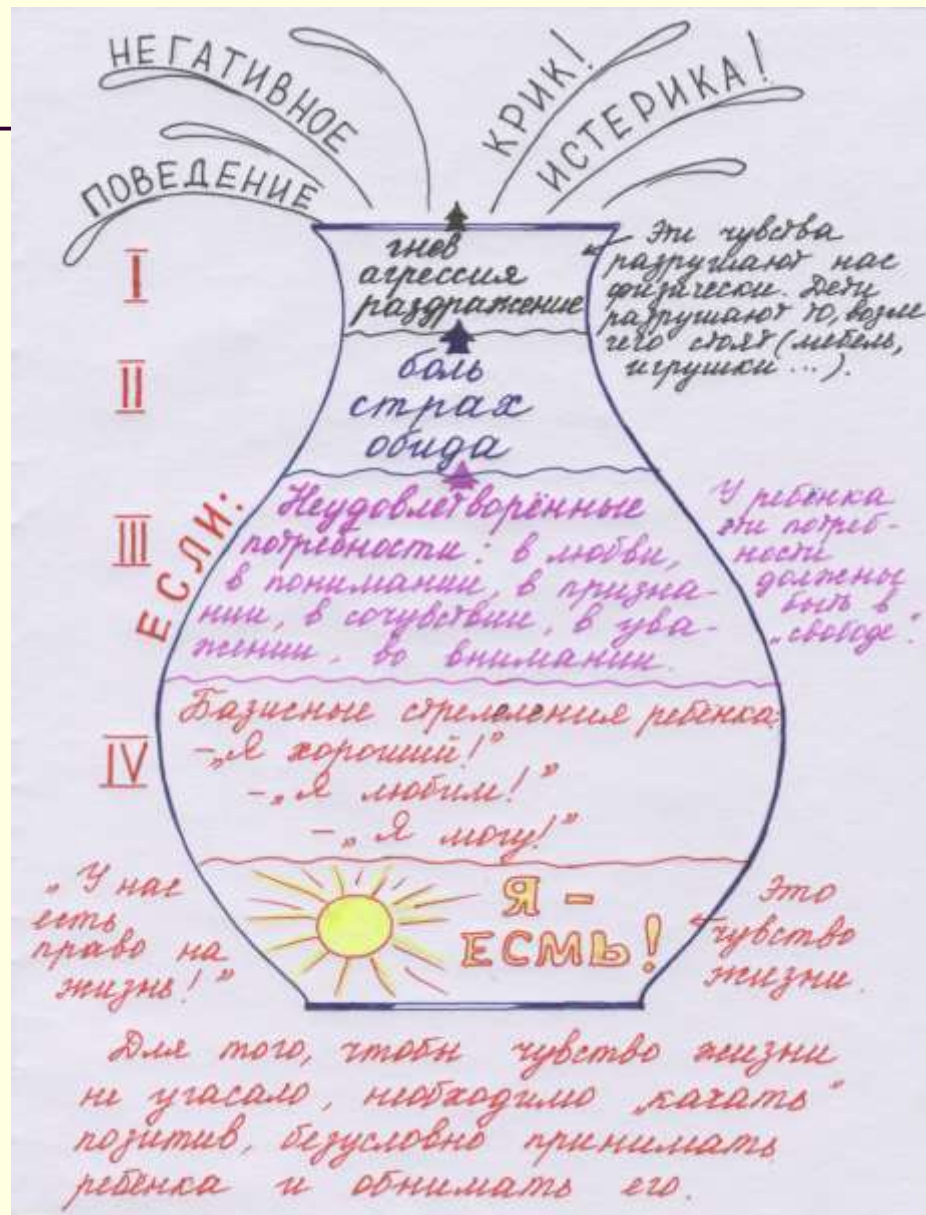 НЕГАТИВНОЕ
ПОВЕДЕНИЕ
КРИК!
ИСТЕРИКА!
I
гнев
агрессия
раздражение
Эти чувства
разрушают нас
физически. Дети
разрушают то, возле
чего стоят (мебель,
игрушки ...).
II
боль
страх
обида
ЕСЛИ:
III
Неудовлетворённые
потребности: в любви,
в понимании, в призна-
нии, в сочувствии, в ува-
жении, во внимании.
У ребёнка
эти потреб-
ности
должны
быть в
„свободе".
IV
Базисные стремления ребёнка:
-„Я хороший!"
-„Я любим!"
-„Я могу!"
„У нас
есть
право на
жизнь!"
Я -
ЕСМЬ!
Это
чувство
жизни.
Для того, чтобы чувство жизни
не угасало, необходимо „качать"
позитив, безусловно принимать
ребёнка и обнимать его.